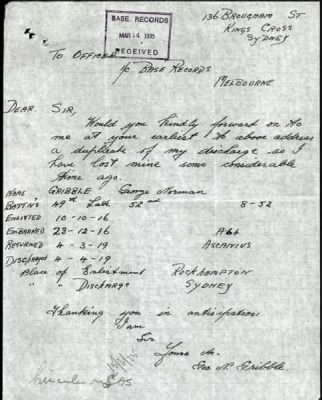 136 BROUGHAM ST
KINGS CROSS
SYDNEY
BASE RECORDS
MAR 14 1935
RECEIVED
TO OFFICER
I/C BASE RECORDS
MELBOURNE
DEAR. SIR,
Would you kindly forward on to
me at your earliest to above address
a duplicate of my discharge as I
have lost mine some considerable
time ago.
NAME GRIBBLE George Norman
BATT'EN'S 49th Late 52nd 8-52
ENLISTED 10-10-16
EMBARKED 23-12-16 A64
RETURNED 4-3-19 ASCANIUS
DISCHARGED 4-4-19
Place of Enlistment ROCKHAMPTON
" " Discharge SYDNEY
Thanking you in anticipation
I am
Sir
Yours
Geo N Gribble.